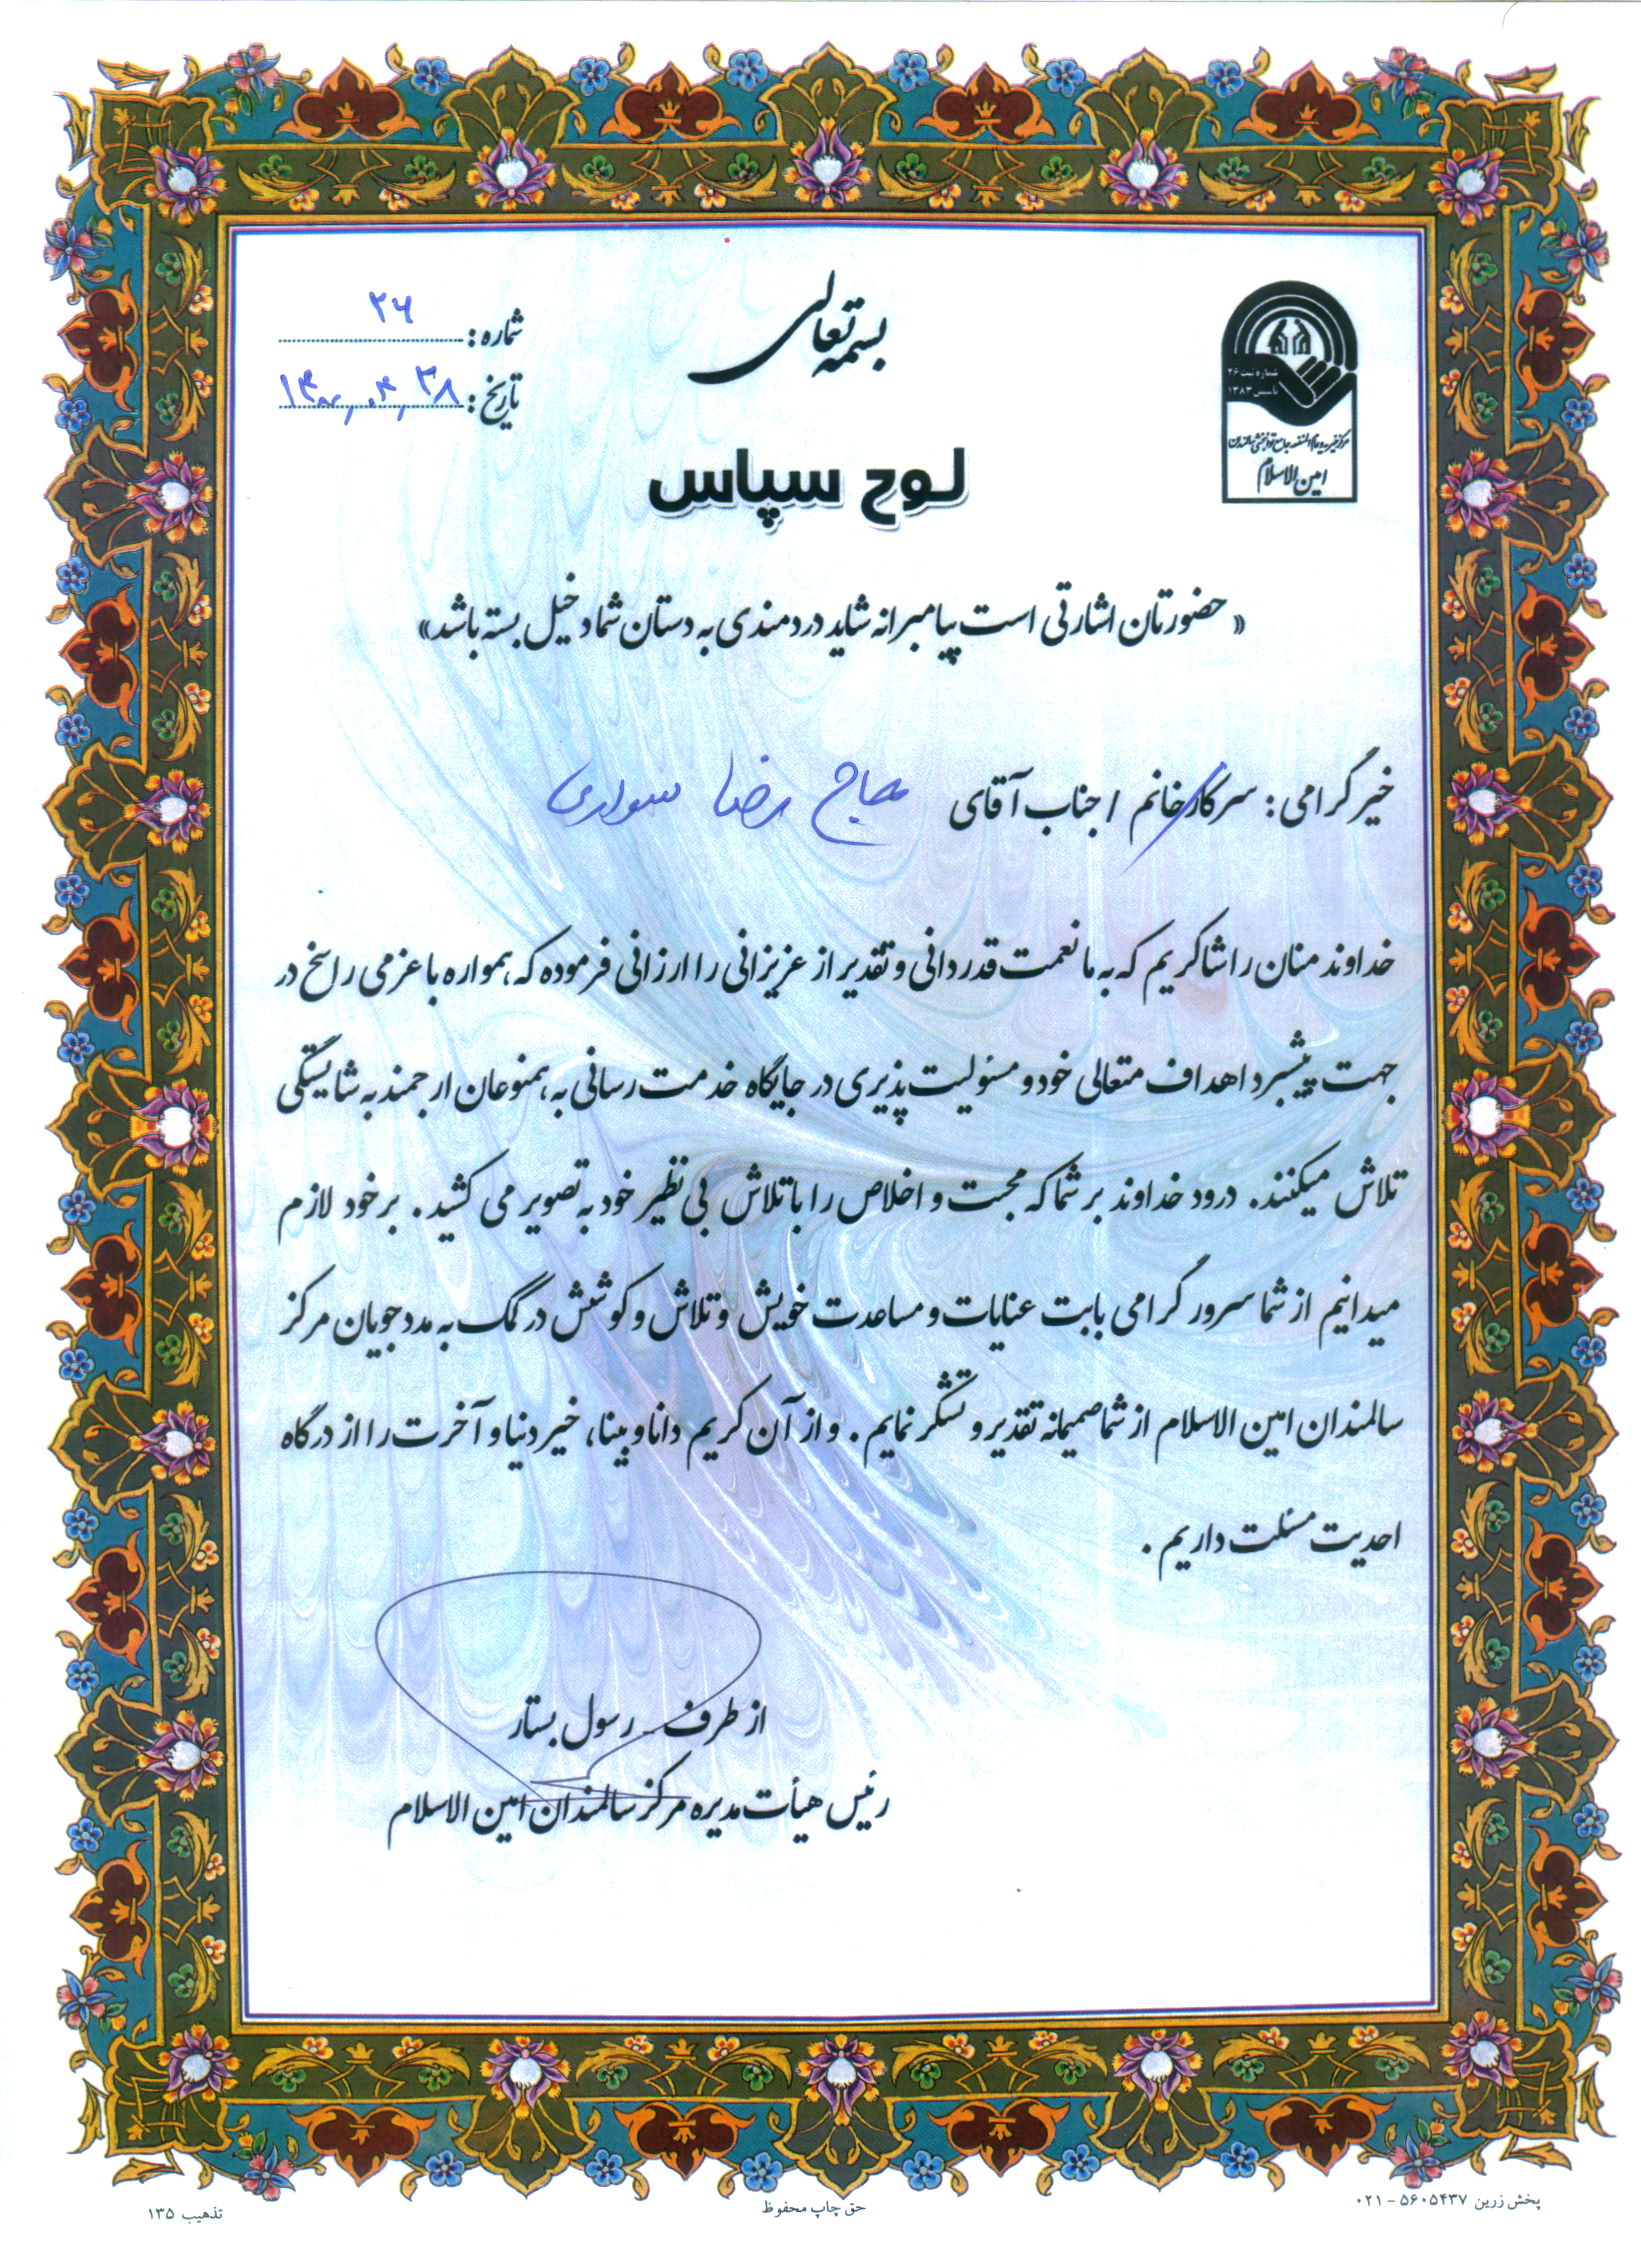 بسمه تعالی
شماره: ۲۶
تاریخ:
شماره ثبت ۲۶
تاسیس ۱۳۸۳
امین الاسلام
لوح سپاس
«حضورتان اشارتی است پیامبرانه شاید دردمندی به دستان شما دخیل بسته باشد»
خیر گرامی: سرکار خانم / جناب آقای حاج رضا سواری
خداوند منان را شاکریم که به ما نعمت قدردانی و تقدیر از عزیزانی را ارزانی فرموده که همواره با عزمی راسخ در
جهت پیشبرد اهداف متعالی خود و مسئولیت پذیری در جایگاه خدمت رسانی به همنوعان ارجمند به شایستگی
تلاش میکنند. درود خداوند بر شما که محبت و اخلاص را با تلاش بی نظیر خود به تصویر می کشید. بر خود لازم
میدانیم از شما سرور گرامی بابت عنایات و مساعدت خویش و تلاش و کوشش در کمک به مددجویان مرکز
سالمندان امین الاسلام از شما صمیمانه تقدیر و تشکر نمایم. و از آن کریم دانا و بینا، خیر دنیا و آخرت را از درگاه
احدیت مسئلت داریم.
از طرف رسول بستار
رئیس هیأت مدیره مرکز سالمندان امین الاسلام
پخش زرین ۵۶۰۵۴۳۷ - ۰۲۱
حق چاپ محفوظ
تذهیب ۱۳۵